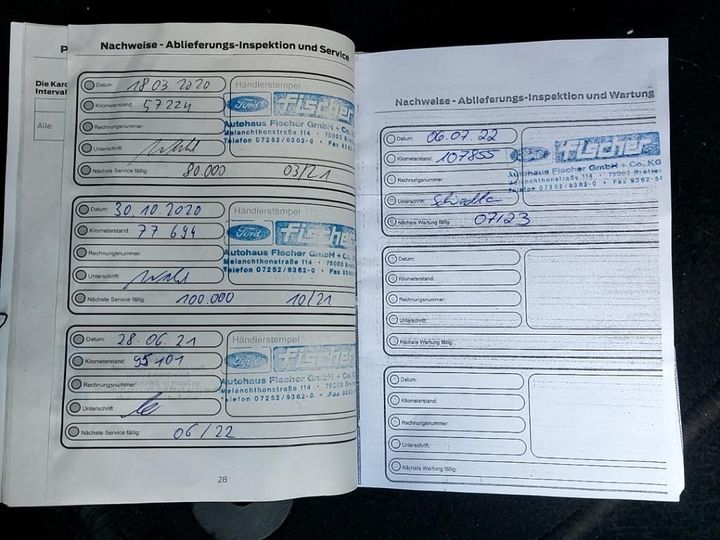 P
Die Karo
Interval
Alle
Nachweise - Ablieferungs-Inspektion und Service
Datum: 18.03 2020
Händlerstempel
Kilometerstand: 57224
Ford Fischer
Rechnungsnummer:
Autohaus Fischer GmbH + Co.
Melanchthonstraße 114 · 75003 B
Unterschrift:
Telefon 07252/9362-0 · Fax 93
Nächste Service fällig: 80.000 03/21
Datum: 30.10.2020
Händlerstempel
Kilometerstand: 77 694
Ford Fischer
Rechnungsnummer:
Autohaus Fischer GmbH + Co.
Melanchthonstraße 114 · 75003
Unterschrift:
Telefon 07252/9362-0 · Fax 93
Nächste Service fällig: 100.000 10/21
Datum: 28.06.21
Händlerstempel
Kilometerstand: 95101
Ford Fischer
Rechnungsnummer:
Autohaus Fischer GmbH + Co.
Melanchthonstraße 114 · 75003
Unterschrift:
Telefon 07252/9362-0 · Fax
Nächste Service fällig: 06/22
28
Nachweise - Ablieferungs-Inspektion und Wartung
Datum: 06.07.22
Kilometerstand: 107855
Ford Fischer
Rechnungsnummer:
Autohaus Fischer GmbH + Co. KG
Melanchthonstraße 114 · 75003 Brette
Unterschrift:
Telefon 07252/9362-0 · Fax 9362-5
Nächste Wartung fällig: 07/23
Datum:
Kilometerstand:
Rechnungsnummer:
Unterschrift:
Nächste Wartung fällig:
Datum:
Kilometerstand:
Rechnungsnummer:
Unterschrift:
Nächste Wartung fällig: